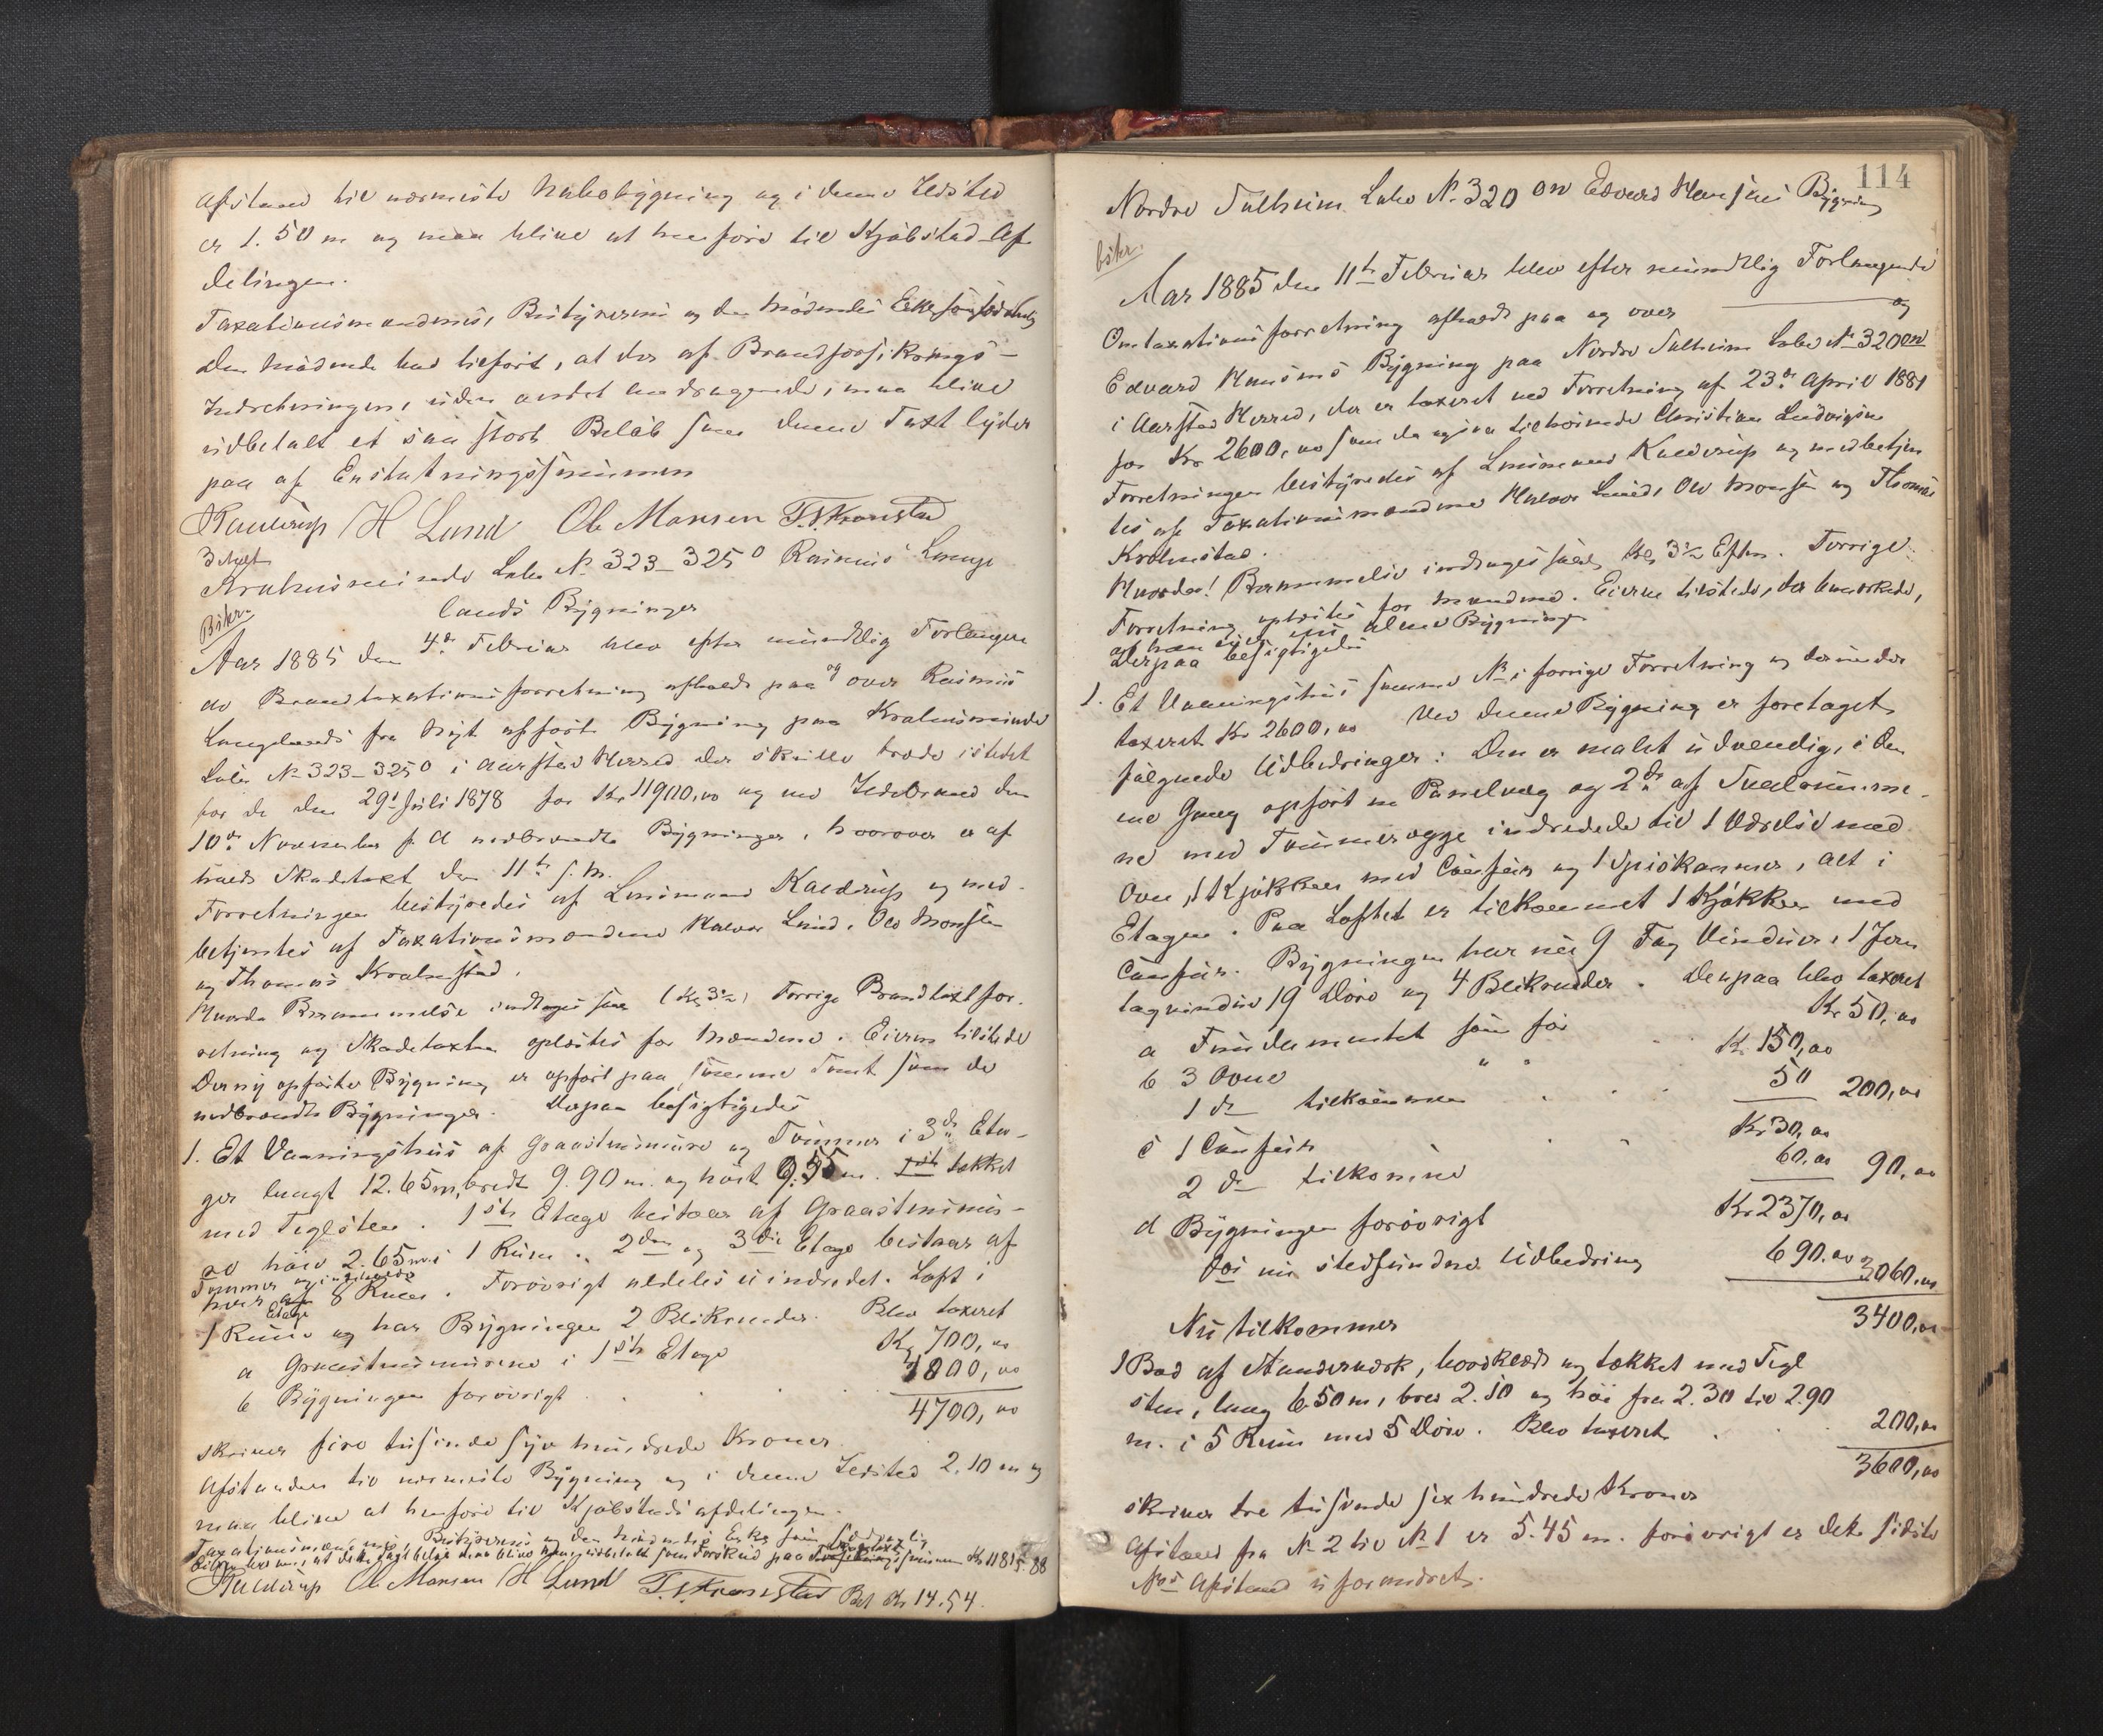 Afstand til nærmeste Nabobygning og i denne Ildsted
er 1.50 m og maa blive at henføre til Kjøbstad-Af-
delingen.
Taxationsmændene, Bestyreren og den mødende Enke som
den mødende har tilført, at der af Brandforsikrings-
Indretningen, uden andet andragende, maa blive
udbetalt et saa stort Beløb som denne Taxt lyder
paa af Erstatningssummen
Kaldrup H Lund Ole Monsen T. Kronstad
3 Nyt
Kralusminde Løbe № 323-325 o Rasmus Lange
lands Bygninger
Bskr.
Aar 1885 den 4de Februar blev efter mundtlig Forlangen
de Brandtaxationsforretning afholdt paa og over Rasmus
Langelands fra Nyt opført Bygning paa Kralusminde
Løbe № 323-325 o i Aarstad Herred der skulle træde istedet
for de den 29de Juli 1878 for Kr 11900,00 og ved Ildebrand den
10de November f. A nedbrændte Bygninger, hvorover er af
holdt Skadetaxt den 11te s. M.
Forretningen bestyredes af Lensmand Kaldrup og med-
betjentes af Taxationsmændene Halvor Lund, Ole Monsen
og Thomas Kronstad.
Hvorda Berammelse indtages saa (Kl 3½) Forrige Brandtaxtfor-
retning og Skadetaxten oplæstes for Mændene. Eieren tilstede
Den ny opførte Bygning er opført paa samme Tomt som de
nedbrændte Bygninger. Derpaa besigtigedes
1. Et Vaaningshus af Graastensmure og Tømmer i 3de Eta-
ger langt 12.65 m, bredt 9.90 m. og høit 9.55 m. tækket
med Teglsten. 1ste Etage bestaar af Graastensmur-
ad høie 2.65 m i 1 Rum. 2den og 3die Etage bestaar af
Tømmer og indeholde
hver Etage 8 Rum. Forøvrigt aldeles uindredet. Loft i
1 Rum og har Bygningen 2 Blikrender. Blev taxeret
a Graastensmurene i 1ste Etage Kr 700,00
b Bygningen forøvrigt . . . . 4000,00
4700,00
skriver fire tusinde syv hundrede Kroner.
Afstanden til nærmeste Bygning og i denne Ildsted 2.10 m og
maa blive at henføre til Kjøbstadsafdelingen.
Taxationsmændene, Bestyreren og den mødende Enke som
Kr 11815.88
Kaldrup Ole Monsen H Lund T. Kronstad Bet Kr 14.54.
114
Nordre Solheim Løbe № 320 on Edvard Hansens Bygning
bskr.
Aar 1885 den 11te Februar blev efter mundtlig Forlangende
Omtaxationsforretning afholdt paa og over
Edvard Hansens Bygning paa Nordre Solheim Løbe № 320 on
i Aarstad Herred, der er taxeret ved Forretning af 23de April 1881
for Kr 2600,00 som da opgaves tilhørende Christian Ludvigsen
Forretningen bestyredes af Lensmand Kaldrup og medbetjen
tes af Taxationsmændene Halvor Lund, Ole Monsen og Thomas
Kronstad.
Hvorda! Berammelse indtages saa Kl 3½ Efterm. Forrige
Forretning oplæstes for Mændene. Eieren tilstede, der bemærkede,
at han eier alene Bygningen
Derpaa besigtigedes
1. Et Vaaningshus samme № i forrige Forretning og derunder
taxeret Kr 2600,00 Ved denne Bygning er foretaget
følgende Udbedringer: Den er malet udvendig, i den
ene Gang opført en Panelvæg og 2de af Svalrumme
ne med Tømmervægge indredede til 1 Værelse med
Ovn, 1 Kjøkken med Comfur og 1 Spiskammer, alt i
Etagen. Paa Loftet er tilkommet 1 Kjøkken med
Comfur. Bygningen har nu 9 Fag Vinduer, 1 Jern
tagvindue, 19 Døre og 4 Blikrender. Derpaa blev taxeret
a Fundamentet som før Kr 50,00
b 3 Ovne " " Kr. 150,00
1 do tilkommen . . . 50 200,00
c 1 Comfur . . Kr 30,00
2 do tilkomne 60.00 90,00
d Bygningen forøvrigt Kr 2370,00
For nu stedfundne Udbedring 690.00 3060,00
3400,00
Nu tilkommer
1 Bod af Standerværk, bordklædt og tækket med Tegl
sten, lang 6.50 m, bred 2.10 og høi fra 2.30 til 2.90
m. i 5 Rum med 5 Døre. Blev taxeret . . . 200,00
3600,00
skriver tre tusinde sex hundrede Kroner
Afstand fra № 2 til № 1 er 5.45 m. forøvrigt er dette sidste
№s Afstand uforandret.